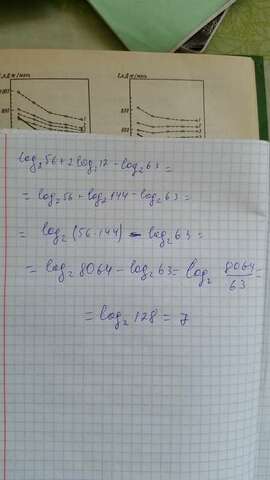 log₂56+2log₂12-log₂63=
=log₂56+log₂144-log₂63=
=log₂(56·144)-log₂63=
=log₂8064-log₂63=log₂ 8064/63=
=log₂128=7